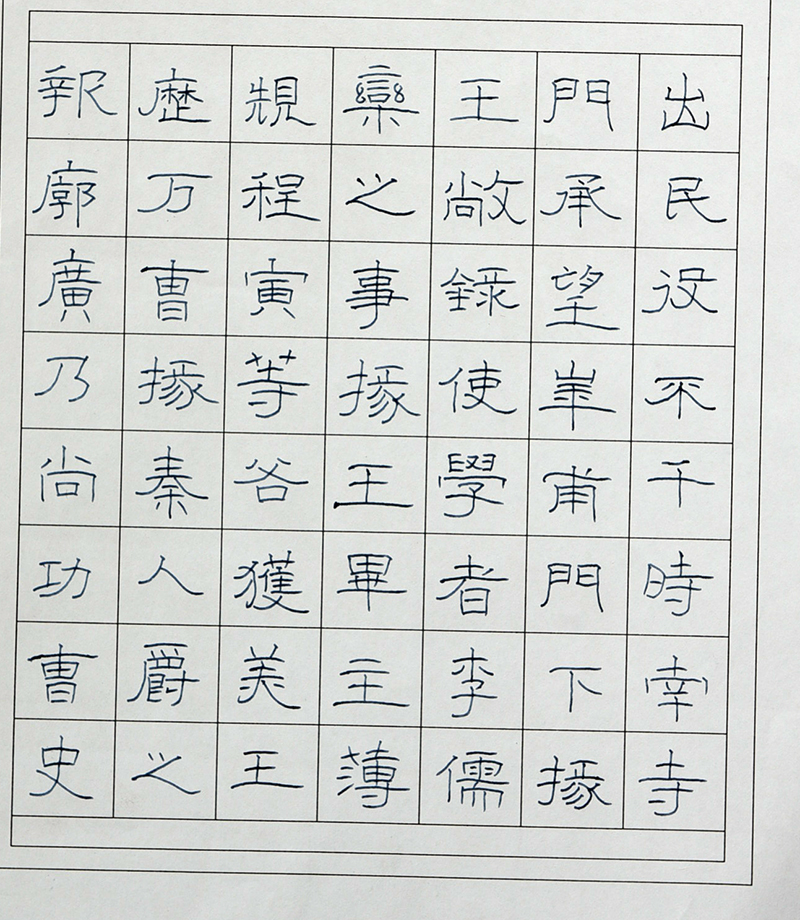 出民役不干時幸寺
門承望崋甫門下掾
王敞錄使學者李儒
欒之事掾王畢主薄
規程寅等各獲美王
歷万曹掾秦人爵之
報廓廣乃尚功曹史